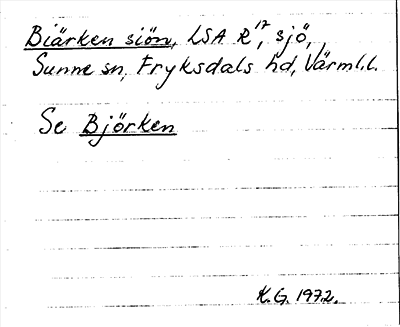 Biärken siön, LSA R¹⁷, sjö,
Sunne sn, Fryksdals hd, Värml.l.
Se Björken
K.G. 1972.